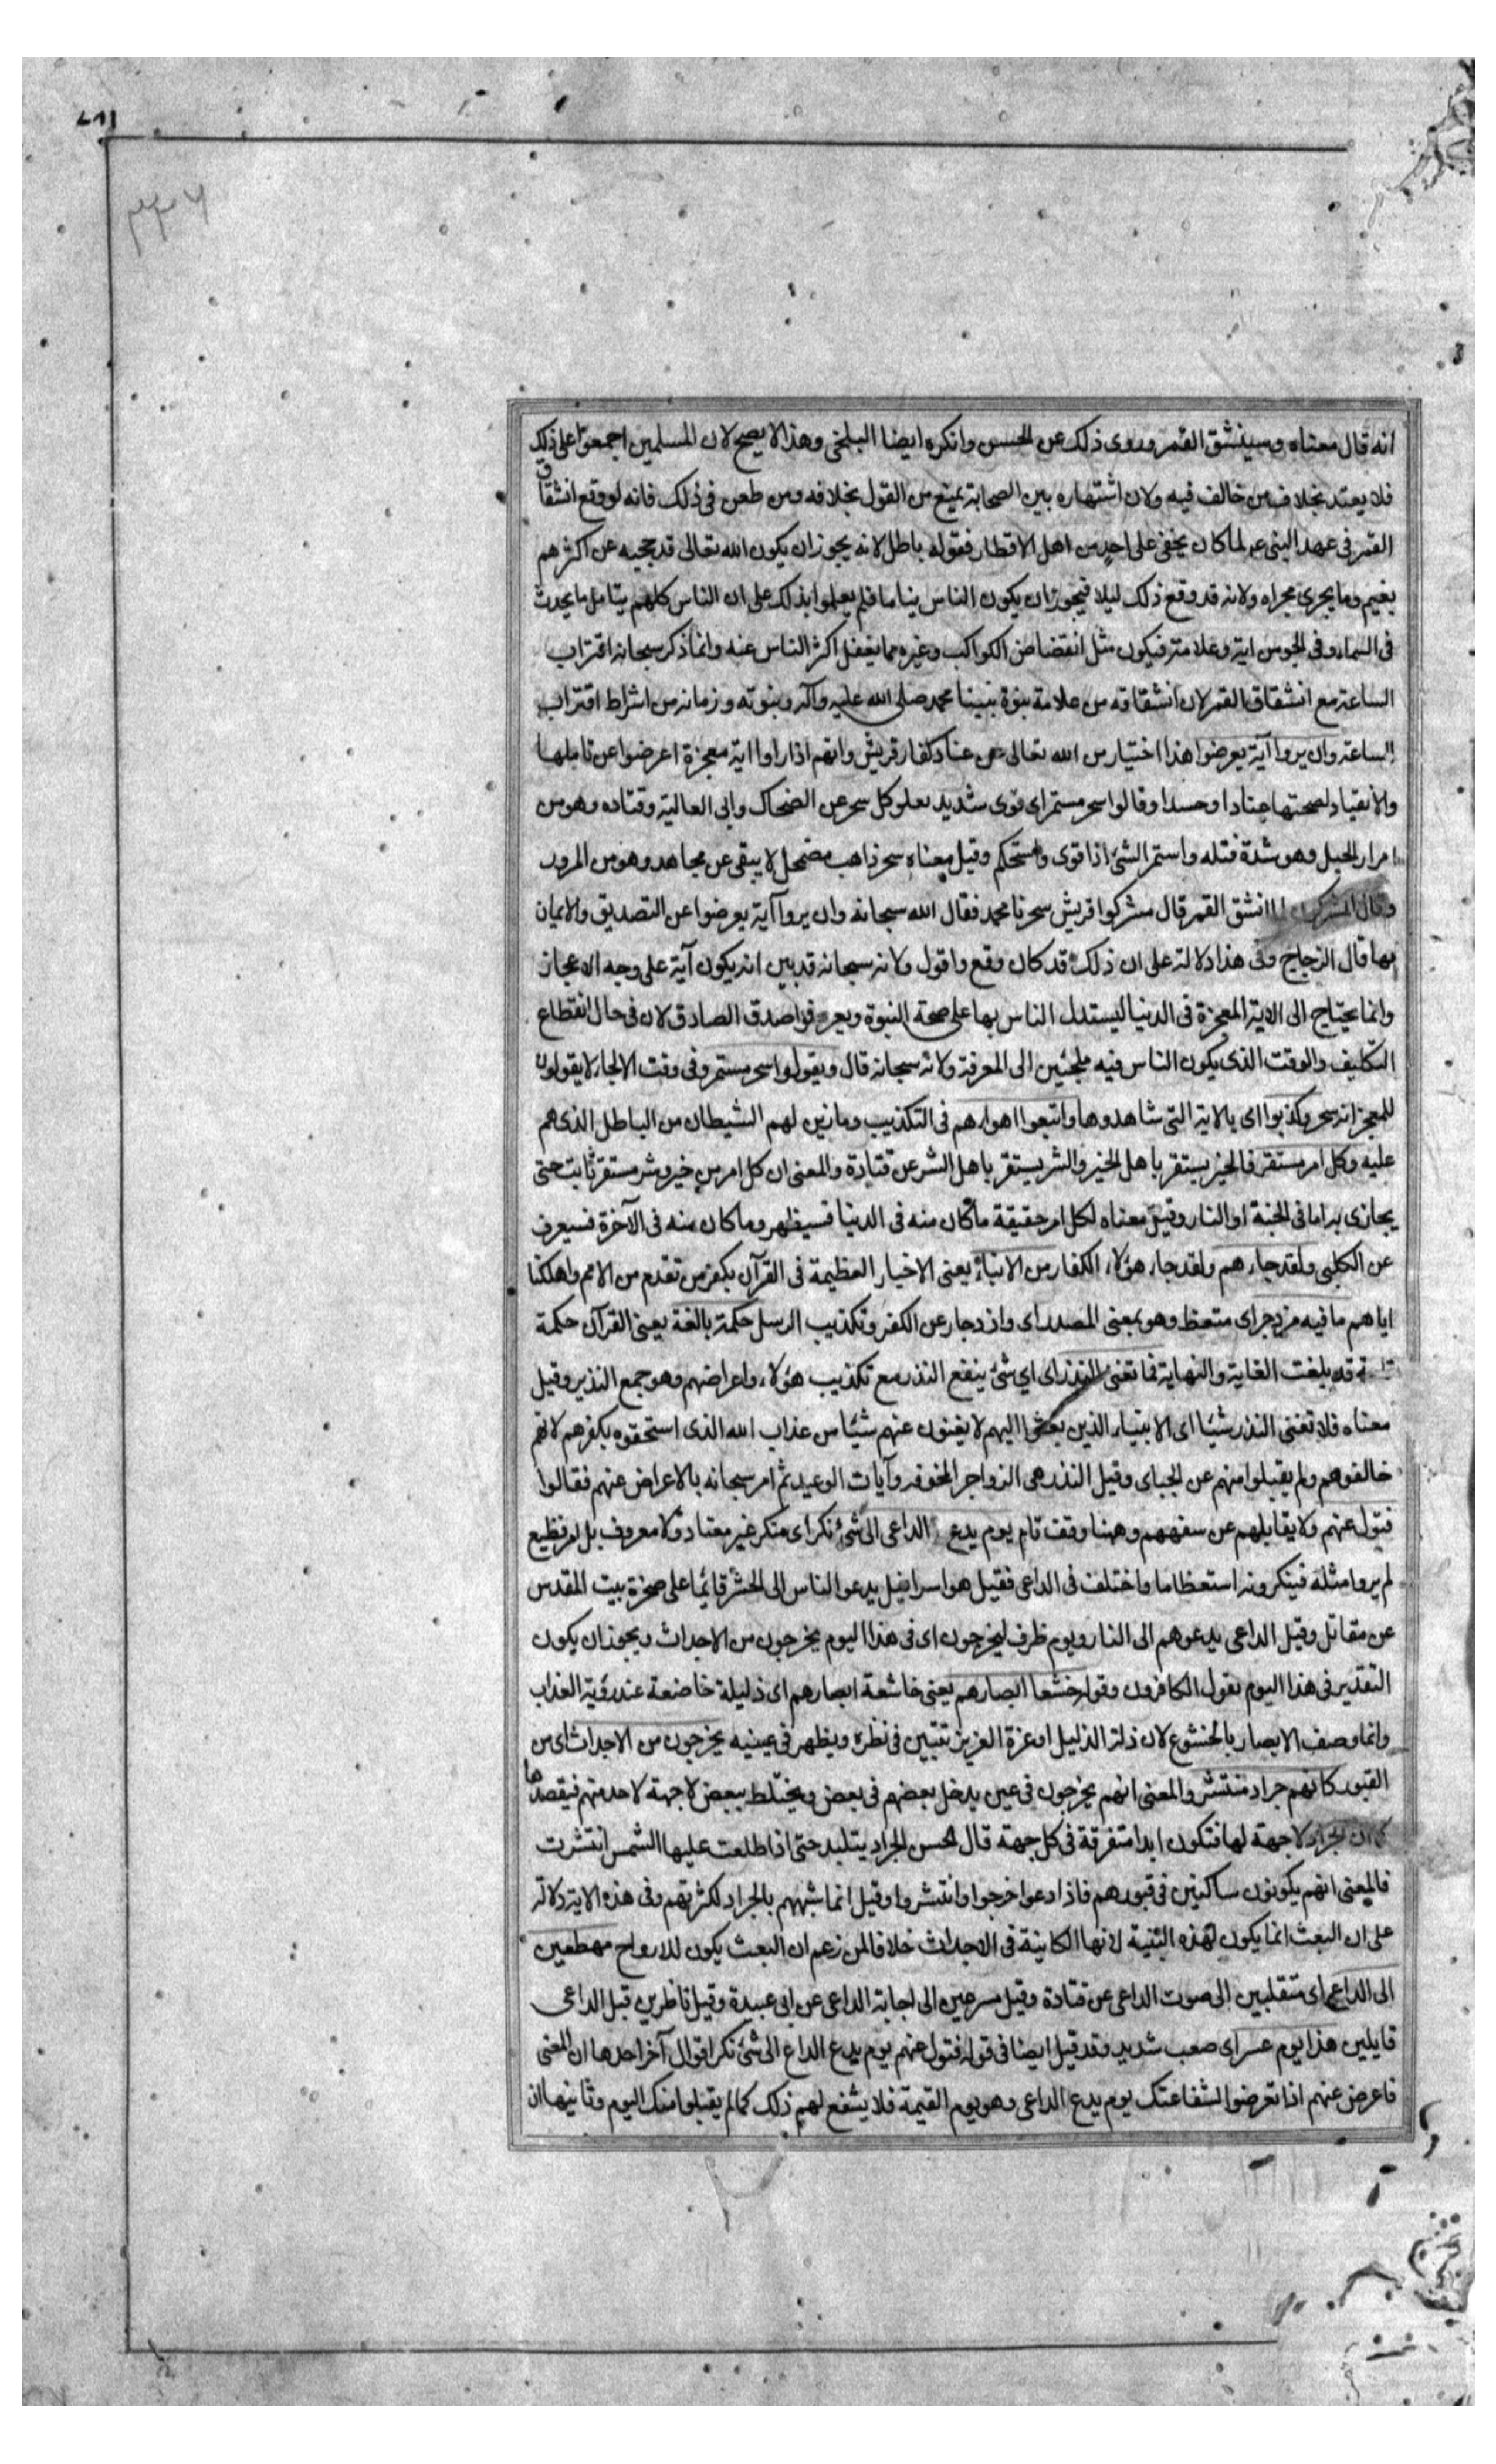 انه قال معناه وسينشق القمر وروى ذلك عن الحسن وانكره ايضا البلخى وهذا لا يصح لان المسلمين اجمعوا على ذلك
فلا يعتد بخلاف من خالف فيه ولان اشتهاره بين الصحابة يمنع من القول بخلافه ومن طعن فى ذلك فانه لو وقع انشقاق
القمر فى عهد النبى عم لما كان يخفى على احد من اهل الاقطار فقوله باطل لانه يجوز ان يكون الله تعالى قد حجبه عن اكثرهم
بغيم وما يجرى مجراه ولانه قد وقع ذلك ليلا فيجوز ان يكون الناس نياما فلم يعلموا بذلك على ان الناس كلهم يتامل ما يحدث
فى السماء وفى الجو من اية وعلامة فيكون مثل انقضاض الكواكب وغيره مما يغفل اكثر الناس عنه وانما ذكر سبحانه اقتراب
الساعة مع انشقاق القمر لان انشقاقه من علامة نبوة نبينا محمد صلى الله عليه وآله ونبوته وزمانه من اشراط اقتراب
الساعة وان يروا آية يعرضوا هذا اختيار من الله تعالى عن عناد كفار قريش وانهم اذا راوا اية معجزة اعرضوا عن تاملها
والانقياد لصحتها عنادا وحسدا وقالوا سحر مستمر اى قوى شديد يعلو كل سحر عن الضحاك وابى العالية وقتاده وهو من
امرار الحبل وهو شدة فتله واستمر الشئ اذا قوى واستحكم وقيل معناه سحر ذاهب مضمحل لا يبقى عن مجاهد وهو من المرور
وقال المفسرون لما انشق القمر قال مشركوا قريش سحرنا محمد فقال الله سبحانه وان يروا آية يعرضوا عن التصديق والايمان
بها قال الزجاج وفى هذا دلالة على ان ذلك قد كان وقع واقول ولانه سبحانه قد بين انه يكون آية على وجه الاعجاز
وانما يحتاج الى الاية المعجزة فى الدنيا ليستدل الناس بها على صحة النبوة ويعرفوا صدق الصادق لان فى حال انقطاع
التكليف والوقت الذى يكون الناس فيه ملجئين الى المعرفة ولانه سبحانه قال ويقولوا سحر مستمر وفى وقت الالجاء لا يقولون
للمعجز انه سحر وكذبوا اى بالاية التى شاهدوها واتبعوا اهواءهم فى التكذيب وما زين لهم الشيطان من الباطل الذى هم
عليه وكل امر مستقر فالخير يستقر باهل الخير والشر يستقر باهل الشر عن قتادة والمعنى ان كل امر من خير وشر مستقر ثابت حتى
يجازى به اما فى الجنة او النار وقيل معناه لكل امر حقيقة ما كان منه فى الدنيا فسيظهر وما كان منه فى الآخرة فسيعرف
عن الكلبى ولقد جاءهم ولقد جاء هؤلاء الكفار من الانباء يعنى الاخبار العظيمة فى القرآن بكفر من تقدم من الامم واهلكنا
اياهم ما فيه مزدجر اى متعظ وهو بمعنى المصدر اى وازدجار عن الكفر وتكذيب الرسل حكمة بالغة يعنى القرآن حكمة
تامة قد بلغت الغاية والنهاية فما تغنى النذر اى اي شئ ينفع النذر مع تكذيب هؤلاء واعراضهم وهو جمع النذير وقيل
معناه فلا تغنى النذر شيئا اى الانبياء الذين بعثوا اليهم لا يغنون عنهم شيئا من عذاب الله الذى استحقوه بكفرهم لانهم
خالفوهم ولم يقبلوا منهم عن الجباى وقيل النذر هى الزواجر المخوفه وآيات الوعيد ثم امر سبحانه بالاعراض عنهم فقالوا
فتول عنهم ولا يقابلهم عن سفههم وههنا وقف تام يوم يدع الداعى الى شئ نكر اى منكر غير معتاد ولا معروف بل امر فظيع
لم يروا مثله فينكرونه استعظاما واختلف فى الداعى فقيل هو اسرافيل يدعو الناس الى الحشر قائما على صخرة بيت المقدس
عن مقاتل وقيل الداعى يدعوهم الى النار ويوم ظرف ليخرجون اى فى هذا اليوم يخرجون من الاجداث ويجوز ان يكون
التقدير فى هذا اليوم يقول الكافرون وقوله خشعا ابصارهم يعنى خاشعة ابصارهم اى ذليلة خاضعة عند رؤية العذاب
وانما وصف الابصار بالخشوع لان ذلة الذليل او عزة العزيز تتبين فى نظره ويظهر فى عينيه يخرجون من الاجداث اى من
القبور كانهم جراد منتشر والمعنى انهم يخرجون فى عين يدخل بعضهم فى بعض ويختلط ببعض لا جهة لاحد منهم فيقصدها
كما ان الجراد لا جهة لها فتكون ابدا متفرقة فى كل جهة قال الحسن الجراد يتلبد حتى اذا طلعت عليها الشمس انتشرت
فالمعنى انهم يكونون ساكنين فى قبورهم فاذا دعوا خرجوا وانتشروا وقيل انما شبههم بالجراد لكثرتهم وفى هذه الاية دلالة
على ان البعث انما يكون لهذه البنية لانها الكاينة فى الاجداث خلافا لمن زعم ان البعث يكون للارواح مهطعين
الى الداعى اى متقلبين الى صوت الداعى عن قتادة وقيل مسرعين الى اجابة الداعى عن ابى عبيدة وقيل ناظرين قبل الداعى
قايلين هذا يوم عسر اى صعب شديد وقد قيل ايضا فى قوله فتول عنهم يوم يدع الداع الى شئ نكر اقوال آخر احدها ان المعنى
فاعرض عنهم اذا تعرضوا لشفاعتك يوم يدع الداعى وهو يوم القيمة فلا يشفع لهم ذلك كما لم يقبلوا منك اليوم وثانيها ان